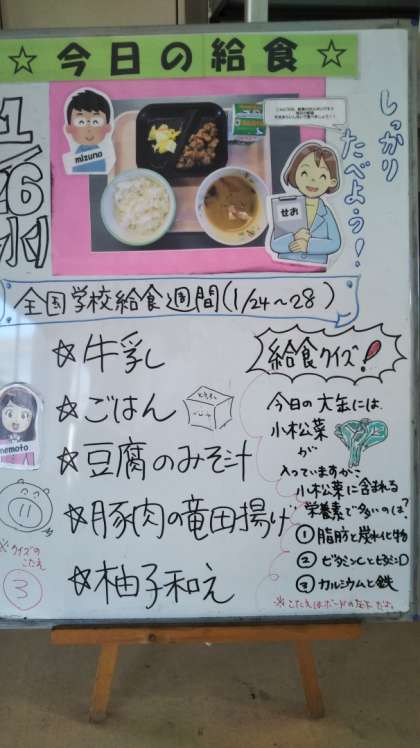 ☆今日の給食☆
1/26
水
mizuno
せお
しっかり
たべよう!
全国学校給食週間(1/24～28)
☆牛乳
☆ごはん
☆豆腐のみそ汁
☆豚肉の竜田揚げ
☆柚子和え
nemoto
※クイズの
こたえ
③
給食クイズ!
今日の大缶には
小松菜
が
入っていますが、
小松菜に含まれる
栄養素で多いのは?
① 脂肪と炭水化物
② ビタミンCとビタミンD
③ カルシウムと鉄
※こたえはボードの左下だよ。